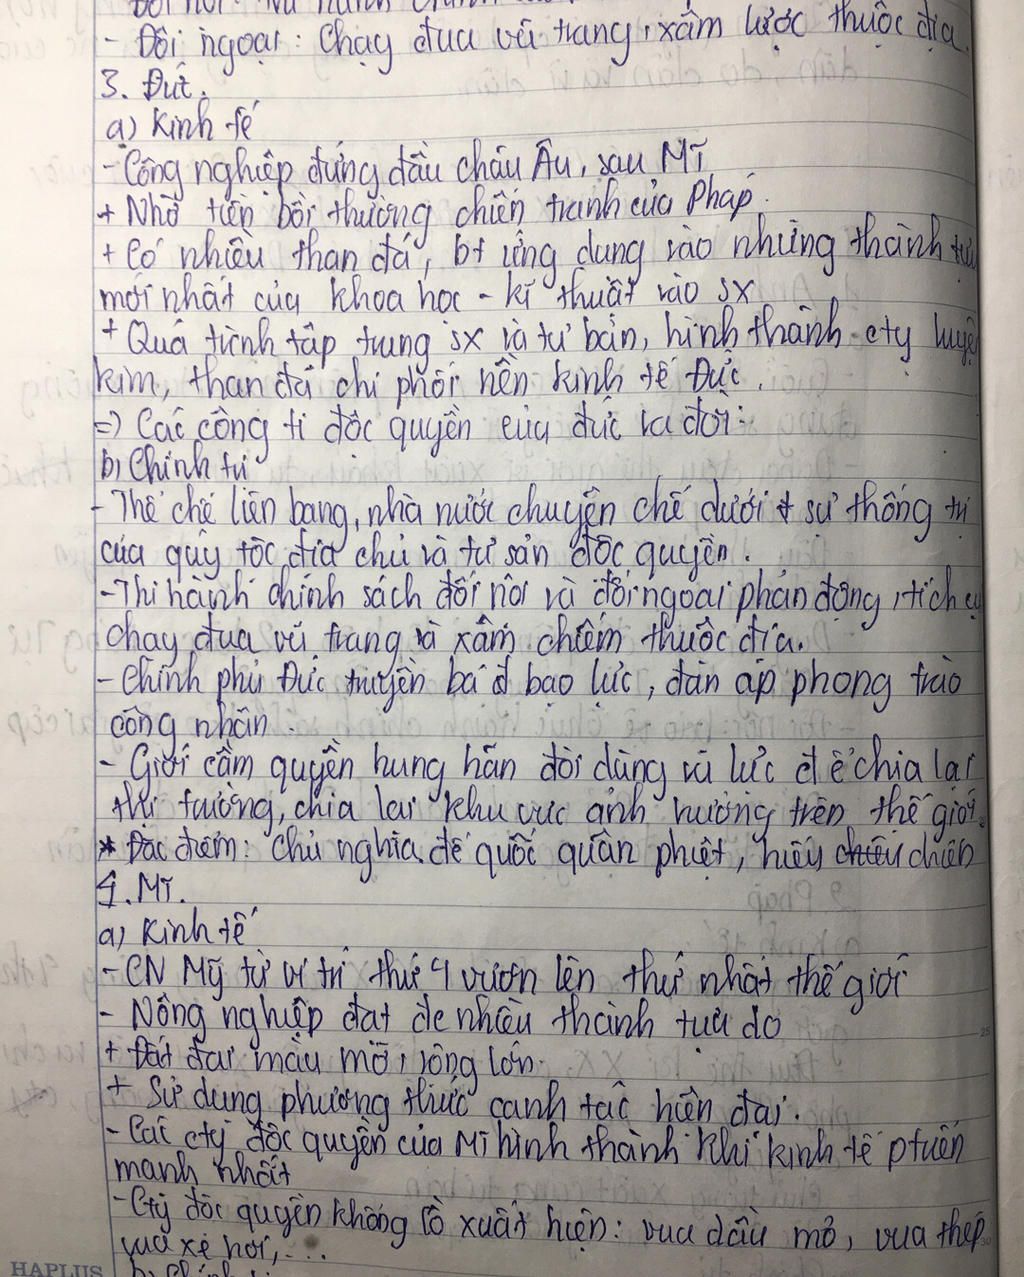 - Đối ngoại: Chạy đua vũ trang, xâm lược thuộc địa.
3. Đức.
a) Kinh tế
- Công nghiệp đứng đầu châu Âu, sau Mĩ
+ Nhờ tiền bồi thường chiến tranh của Pháp.
+ Có nhiều than đá, bt ứng dụng vào những thành tựu
mới nhất của khoa học - kĩ thuật vào sx
+ Quá trình tập trung sx và tư bản, hình thành cty luyện
kim, than đá chi phối nền kinh tế Đức.
=) Các công ti độc quyền của đức ra đời:
b) Chính trị
- Thể chế liên bang, nhà nước chuyên chế dưới sự thống trị
của quý tộc, địa chủ và tư sản độc quyền.
- Thi hành chính sách đối nội và đối ngoại phản động, tích cực
chạy đua vũ trang và xâm chiếm thuộc địa.
- Chính phủ Đức truyền bá bạo lực, đàn áp phong trào
công nhân.
- Giới cầm quyền hung hãn đòi dùng vũ lực để chia lại
thị trường, chia lại khu vực ảnh hưởng trên thế giới.
* Đặc điểm: Chủ nghĩa đế quốc quân phiệt, hiếu chiến
4. Mĩ.
a) Kinh tế
- CN Mỹ từ vị trí thứ 4 vươn lên thứ nhất thế giới
- Nông nghiệp đạt đc nhiều thành tựu do
+ Đất đai màu mỡ, rộng lớn.
+ Sử dụng phương thức canh tác hiện đại.
- Các cty độc quyền của Mĩ hình thành khi kinh tế ptriển
mạnh nhất
- Cty độc quyền khổng lồ xuất hiện: vua dầu mỏ, vua thép
vua xe hơi,....
HAPLUS